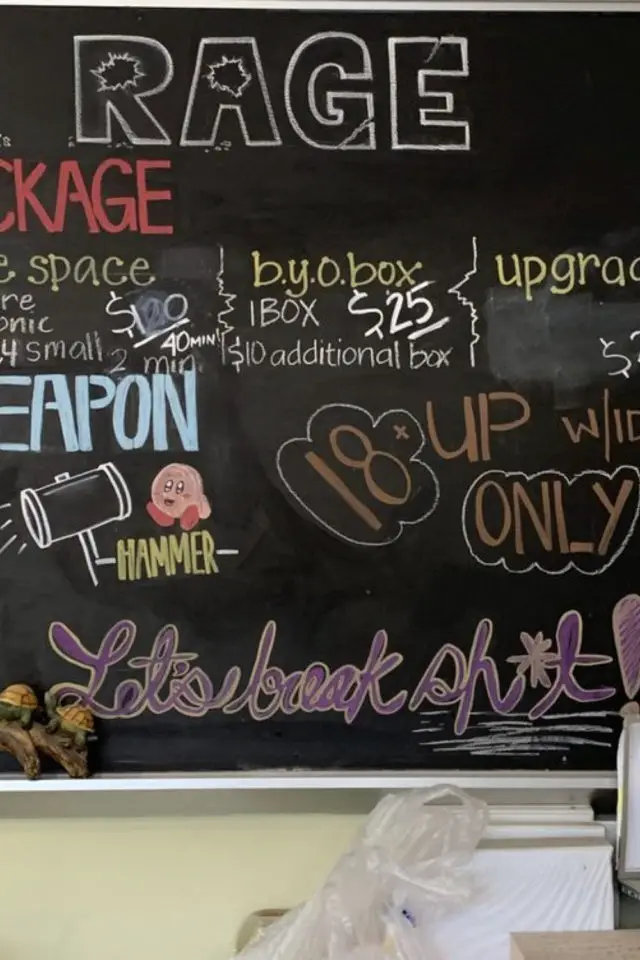 RAGE
CKAGE
e space
b.y.o.box
upgrad
re
onic
4 small
40 MIN
2 min.
1BOX $25
$10 additional box
EAPON
18+ UP w/ID
ONLY
HAMMER
Let's break sh*t!